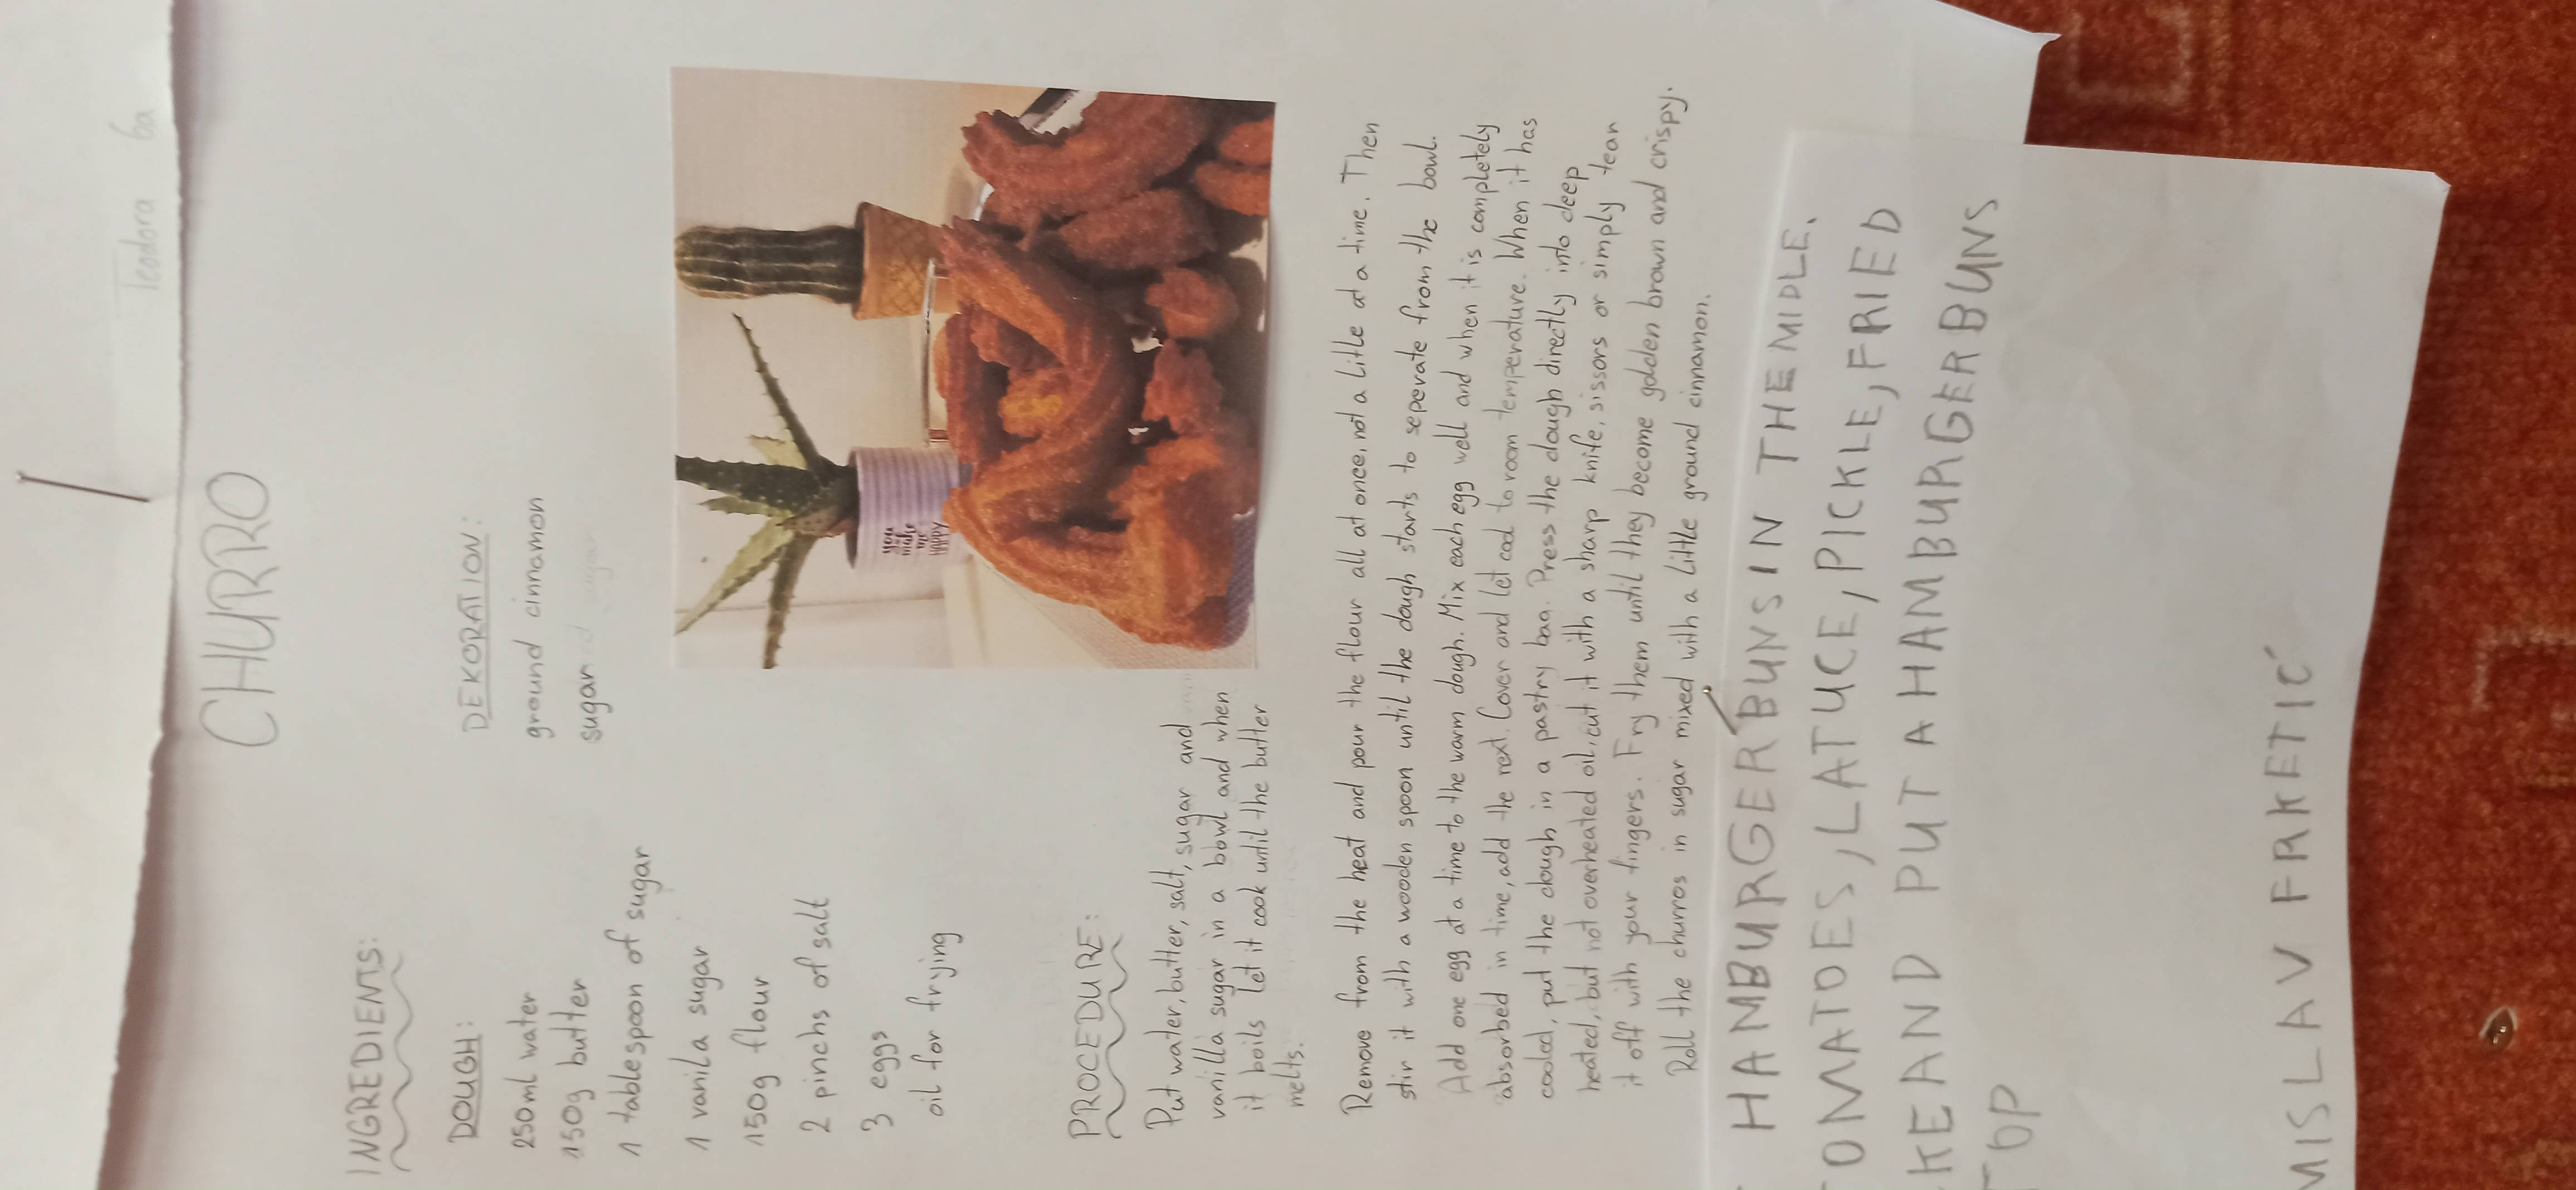 Teodora 6a
CHURRO
INGREDIENTS:
DOUGH:
250ml water
150g butter
1 tablespoon of sugar
1 vanila sugar
150g flour
2 pinchs of salt
3 eggs
oil for frying
DEKORATION:
ground cinnamon
sugar
you
make
me
HAPPY
PROCEDURE:
Put water, butter, salt, sugar and
vanilla sugar in a bowl and when
it boils let it cook until the butter
melts.
Remove from the heat and pour the flour all at once, not a little at a time. Then
stir it with a wooden spoon until the dough starts to seperate from the bowl.
Add one egg at a time to the warm dough. Mix each egg well and when it is completely
absorbed in time, add the next. Cover and let cool to room temperature. When it has
cooled, put the dough in a pastry bag. Press the dough directly into deep
heated, but not overheated oil, cut it with a sharp knife, sissors or simply tear
it off with your fingers. Fry them until they become golden brown and crispy.
Roll the churros in sugar mixed with a little ground cinnamon.
HAMBURGER BUNS IN THE MIDLE.
OMATOES, LATUCE, PICKLE, FRIED
KE AND PUT A HAMBURGER BUNS
TOP
MISLAV FRKETIĆ